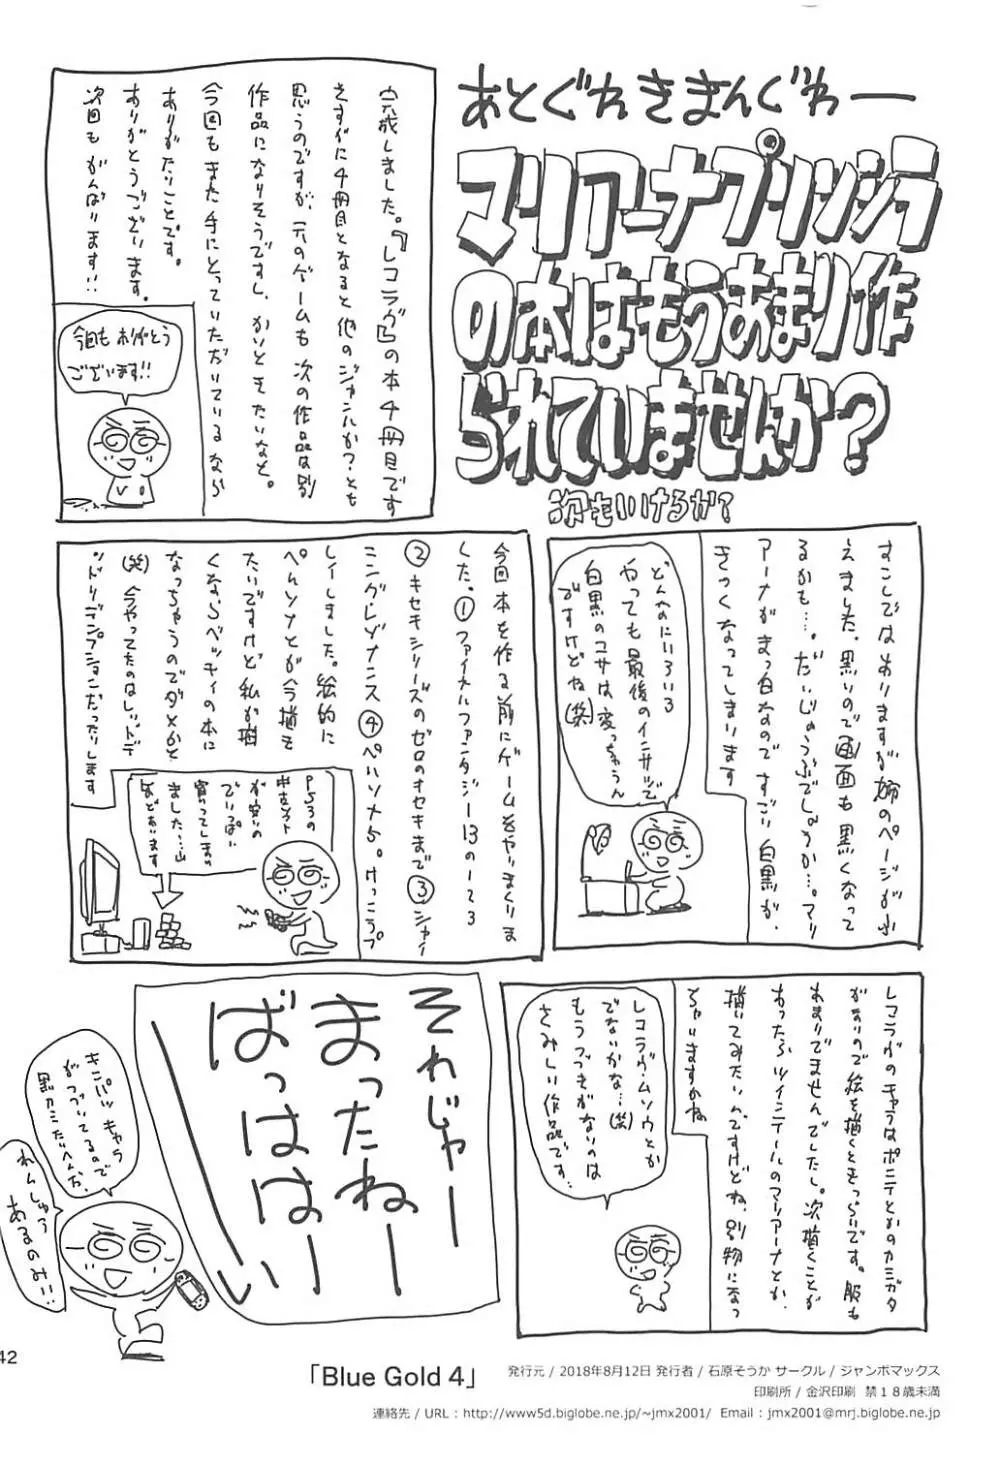 あとぐわきまんぐわー
マリアーナプリンシラ
の本はもうあまり作
られていませんか?
次もいけるか?
完成しました。「レコラヴ」の本4冊目です
さすがに4冊目となると他のジャンルか?とも
思うのですが、元のゲームも次の作品は別
作品になりそうですし、かいときたいなと。
今回もまた手にとっていただいているなら
ありがたいことです。
ありがとうございます。
次回もがんばります!!
今回もありがとう
ございます!!
すこしではありますが姉のページがふ
えました。黒いので画面も黒くなって
るかも…。だいじょうぶでしょうか…。マリ
アーナがまっ白なのですごい白黒が、
きつくなってしまいます
どんなにいろいろ
やっても最後のインサツで
白黒のコサは変っちゃうん
ですけどね(笑)
今回本を作る前にゲームをやりまくりま
した。①ファイナルファンタジー13の1~3
②キセキシリーズのゼロのキセキまで③シャイ
ニングレゾナンス④ペルソナ5。けっこうプ
レイしました。絵的に
ペルソナとかが今描き
たいですけど私が描
くならベッキィの本に
なっちゃうのでダメかと
(笑)今やってたのはレッドデ
ッドリデンプションだったりします
PS3の
中古ソフト
が安いの
でいっぱい
買ってしまい
ました…山
ほどあります
レコラヴのキャラはポニテとかのカミガタ
がなりので絵を描くときつらいです。服も
あまりでませんでしたし。次描くことが
あったらツインテールのマリアーナとか、
描いてみたいんですけどね、別物になっ
ちゃいますかね
レコラヴ・ムソウとか
でないかな…(笑)
もうつづきがないのは
さみしい作品です…
それじゃー
まったねー
ばっはははーい
キンパツキャラ
がつづいてるので
黒カミたいへんだ、
れんしゅう
あるのみ!!
42
「Blue Gold 4」
発行元 / 2018年8月12日 発行者 / 石原そうか サークル / ジャンボマックス
印刷所 / 金沢印刷 禁18歳未満
連絡先 / URL : http://www5d.biglobe.ne.jp/~jmx2001/ Email : jmx2001@mrj.biglobe.ne.jp